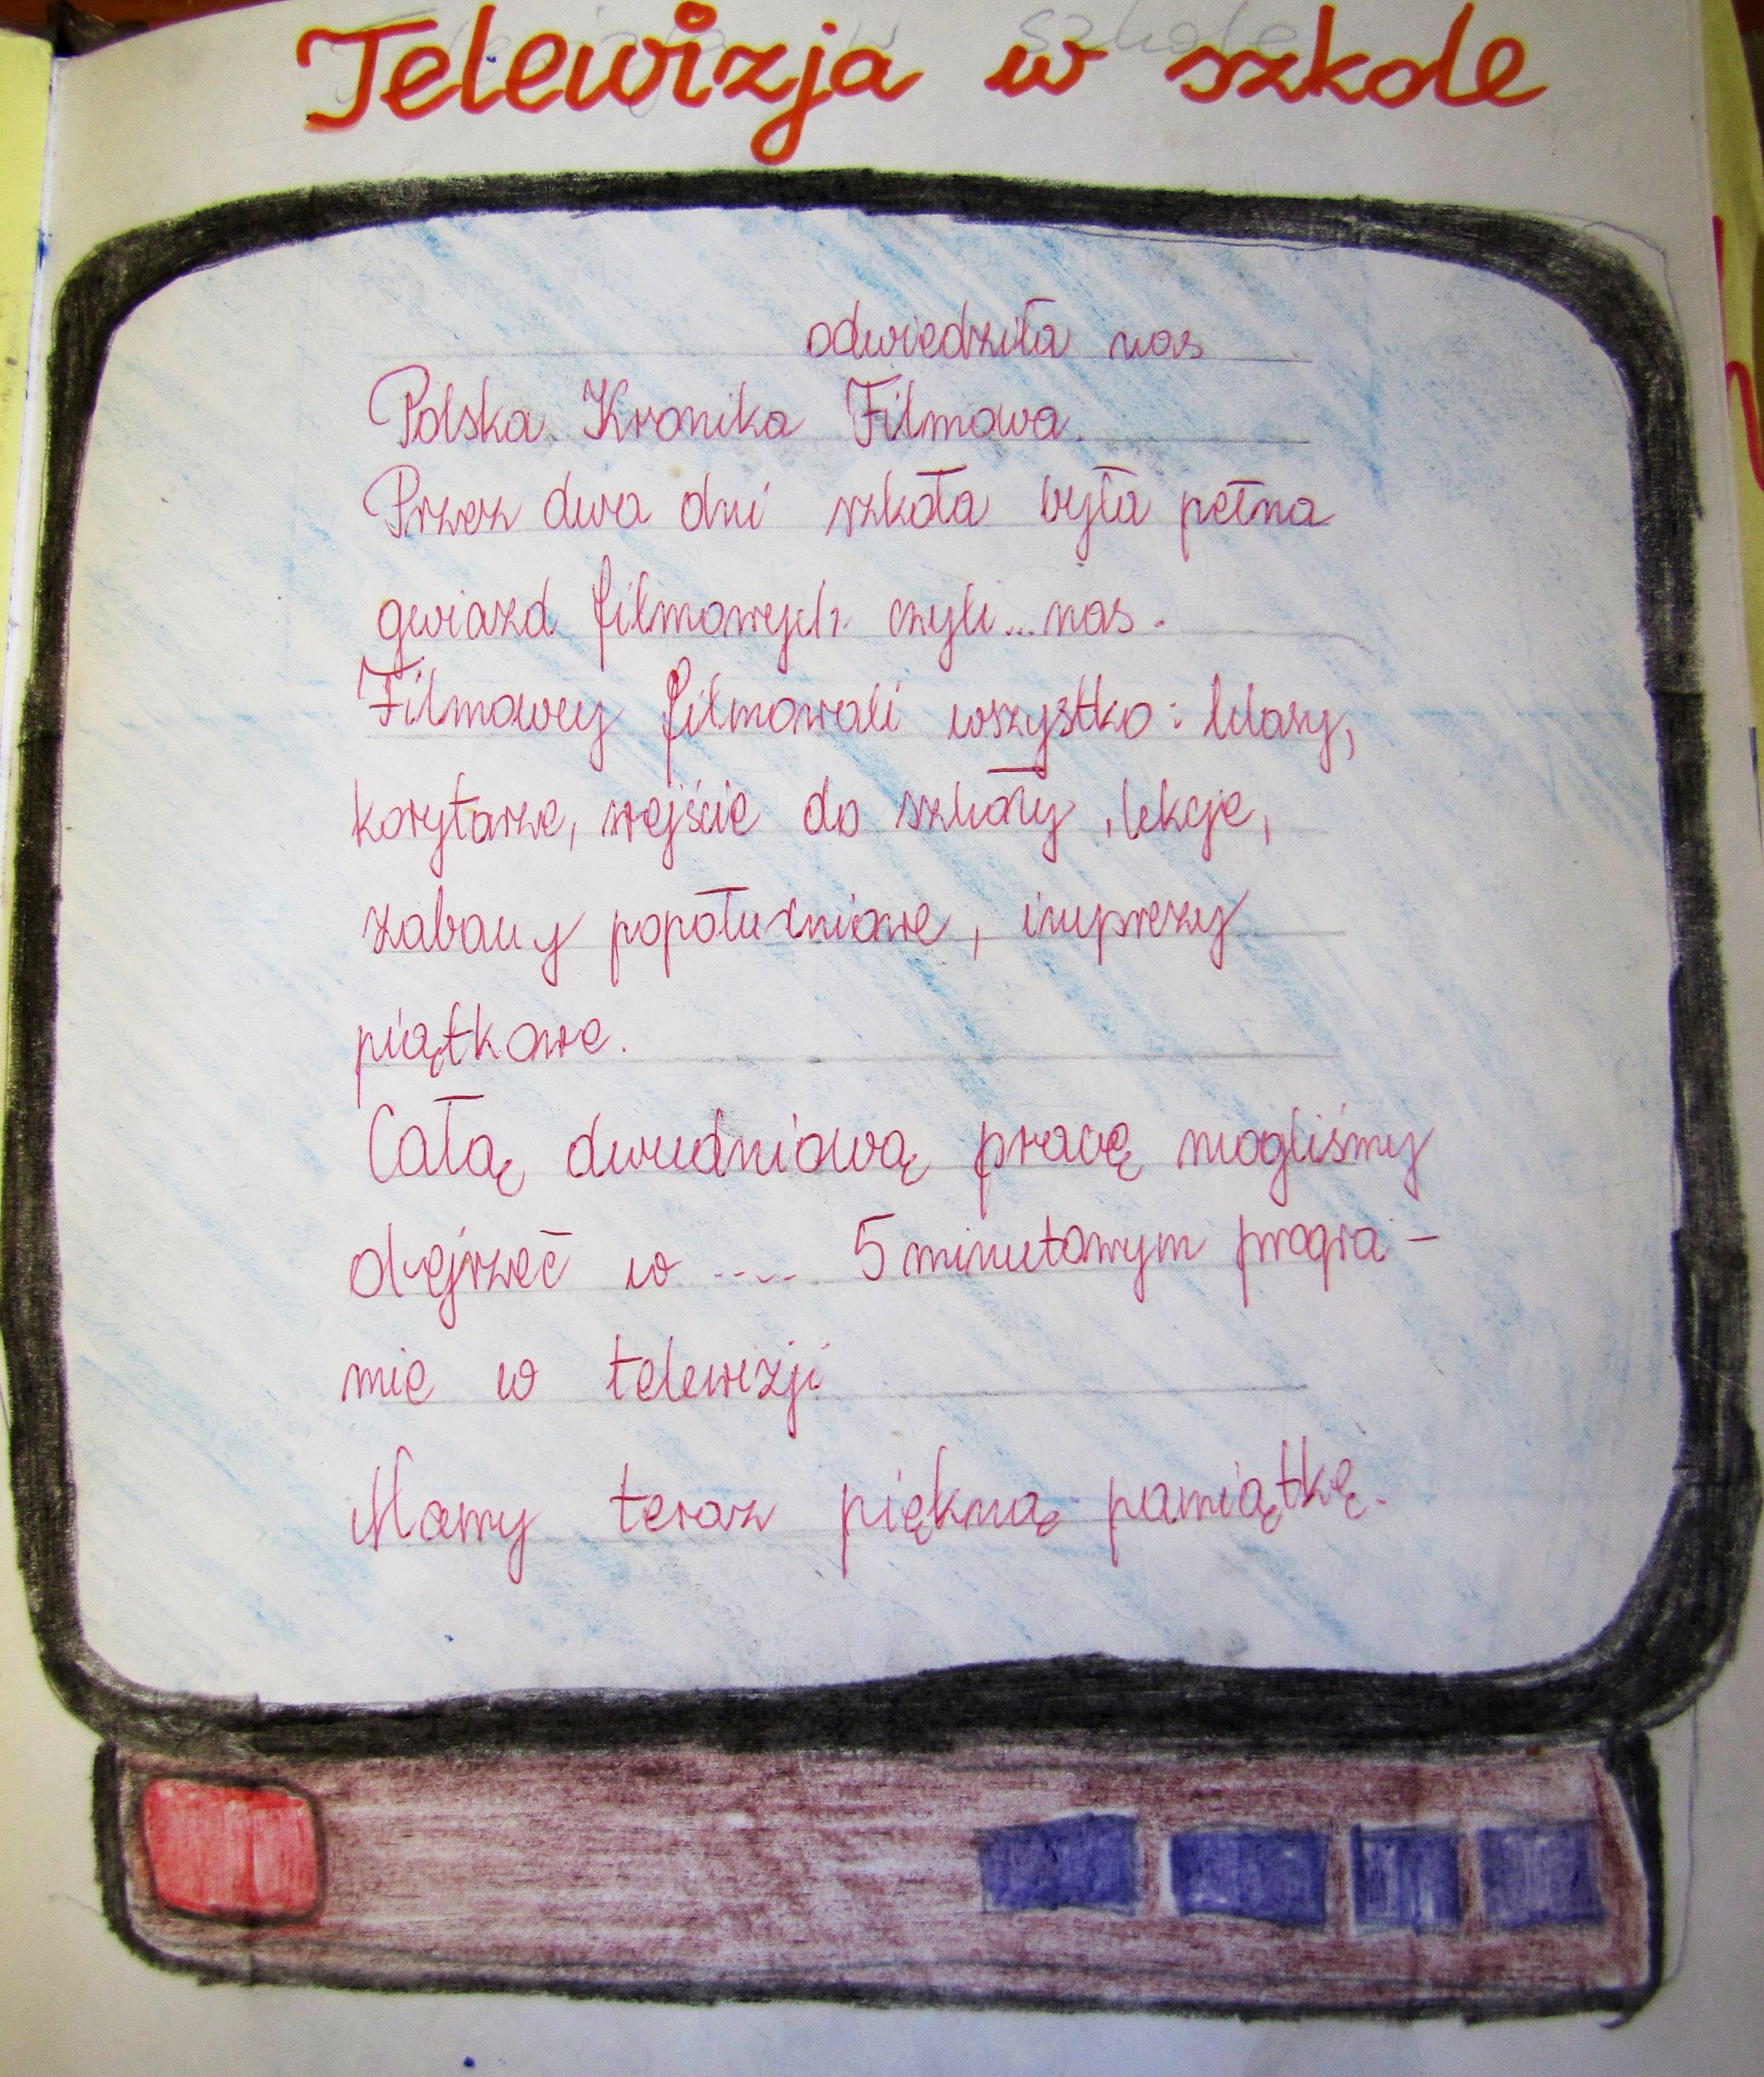 Telewizja w szkole
odwiedziła nas
Polska Kronika Filmowa.
Przez dwa dni szkoła była pełna
gwiazd filmowych czyli...nas.
Filmowcy filmowali wszystko: klasy,
korytarze, wejście do szkoły, lekcje,
zabawy popołudniowe, imprezy
piątkowe.
Całą dwudniową pracę mogliśmy
obejrzeć w .... 5 minutowym progra-
mie w telewizji
Mamy teraz piękną pamiątkę.